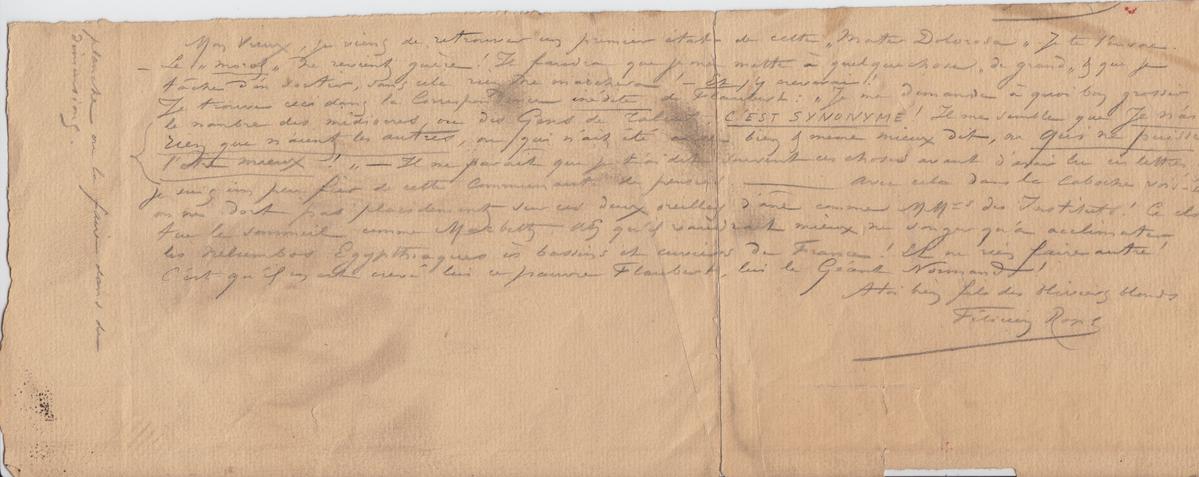 Mon Vieux, je viens de retrouver un premier état de cette „Mater Dolorosa" Je te l'envoie.
— Le „moral" ne revient guère! Il faudra que je me mette à quelque chose „de grand" & que je
tâche d'en sortir, sans cela rien ne marchera! — Et j'y creverai!
Je trouve ceci dans la Correspondance inédite de Flaubert: „Je me demande à quoi bon grossir
le nombre des médiocres, ou des Gens de talent, C'EST SYNONYME! Il me semble que Je n'ai
rien que n'aient les autres, ou qui n'ait été aussi bien & même mieux dit, ou qui ne puisse
l'être mieux!" — Il me paraît que je t'ai dit souvent ces choses avant d'avoir lu ces lettres
je suis un peu fier de cette Communauté de pensée! ——— Avec cela dans la Caboche, vois-
on ne dort pas placidement sur ces deux oreilles d'âne comme MMrs des Instituts! Ce
tue le sommeil comme Macbeth & qu'il vaudrait mieux ne songer qu'à acclimater
les nélumbos Egypthiaques ès bassins et cuviers de France! Et ne rien faire autre!
C'est qu'il en est crevé lui ce pauvre Flaubert, lui le Géant Normand!
A toi bien fils des blonds
Félicien Rops
planche ou la faire dans les
dimensions.